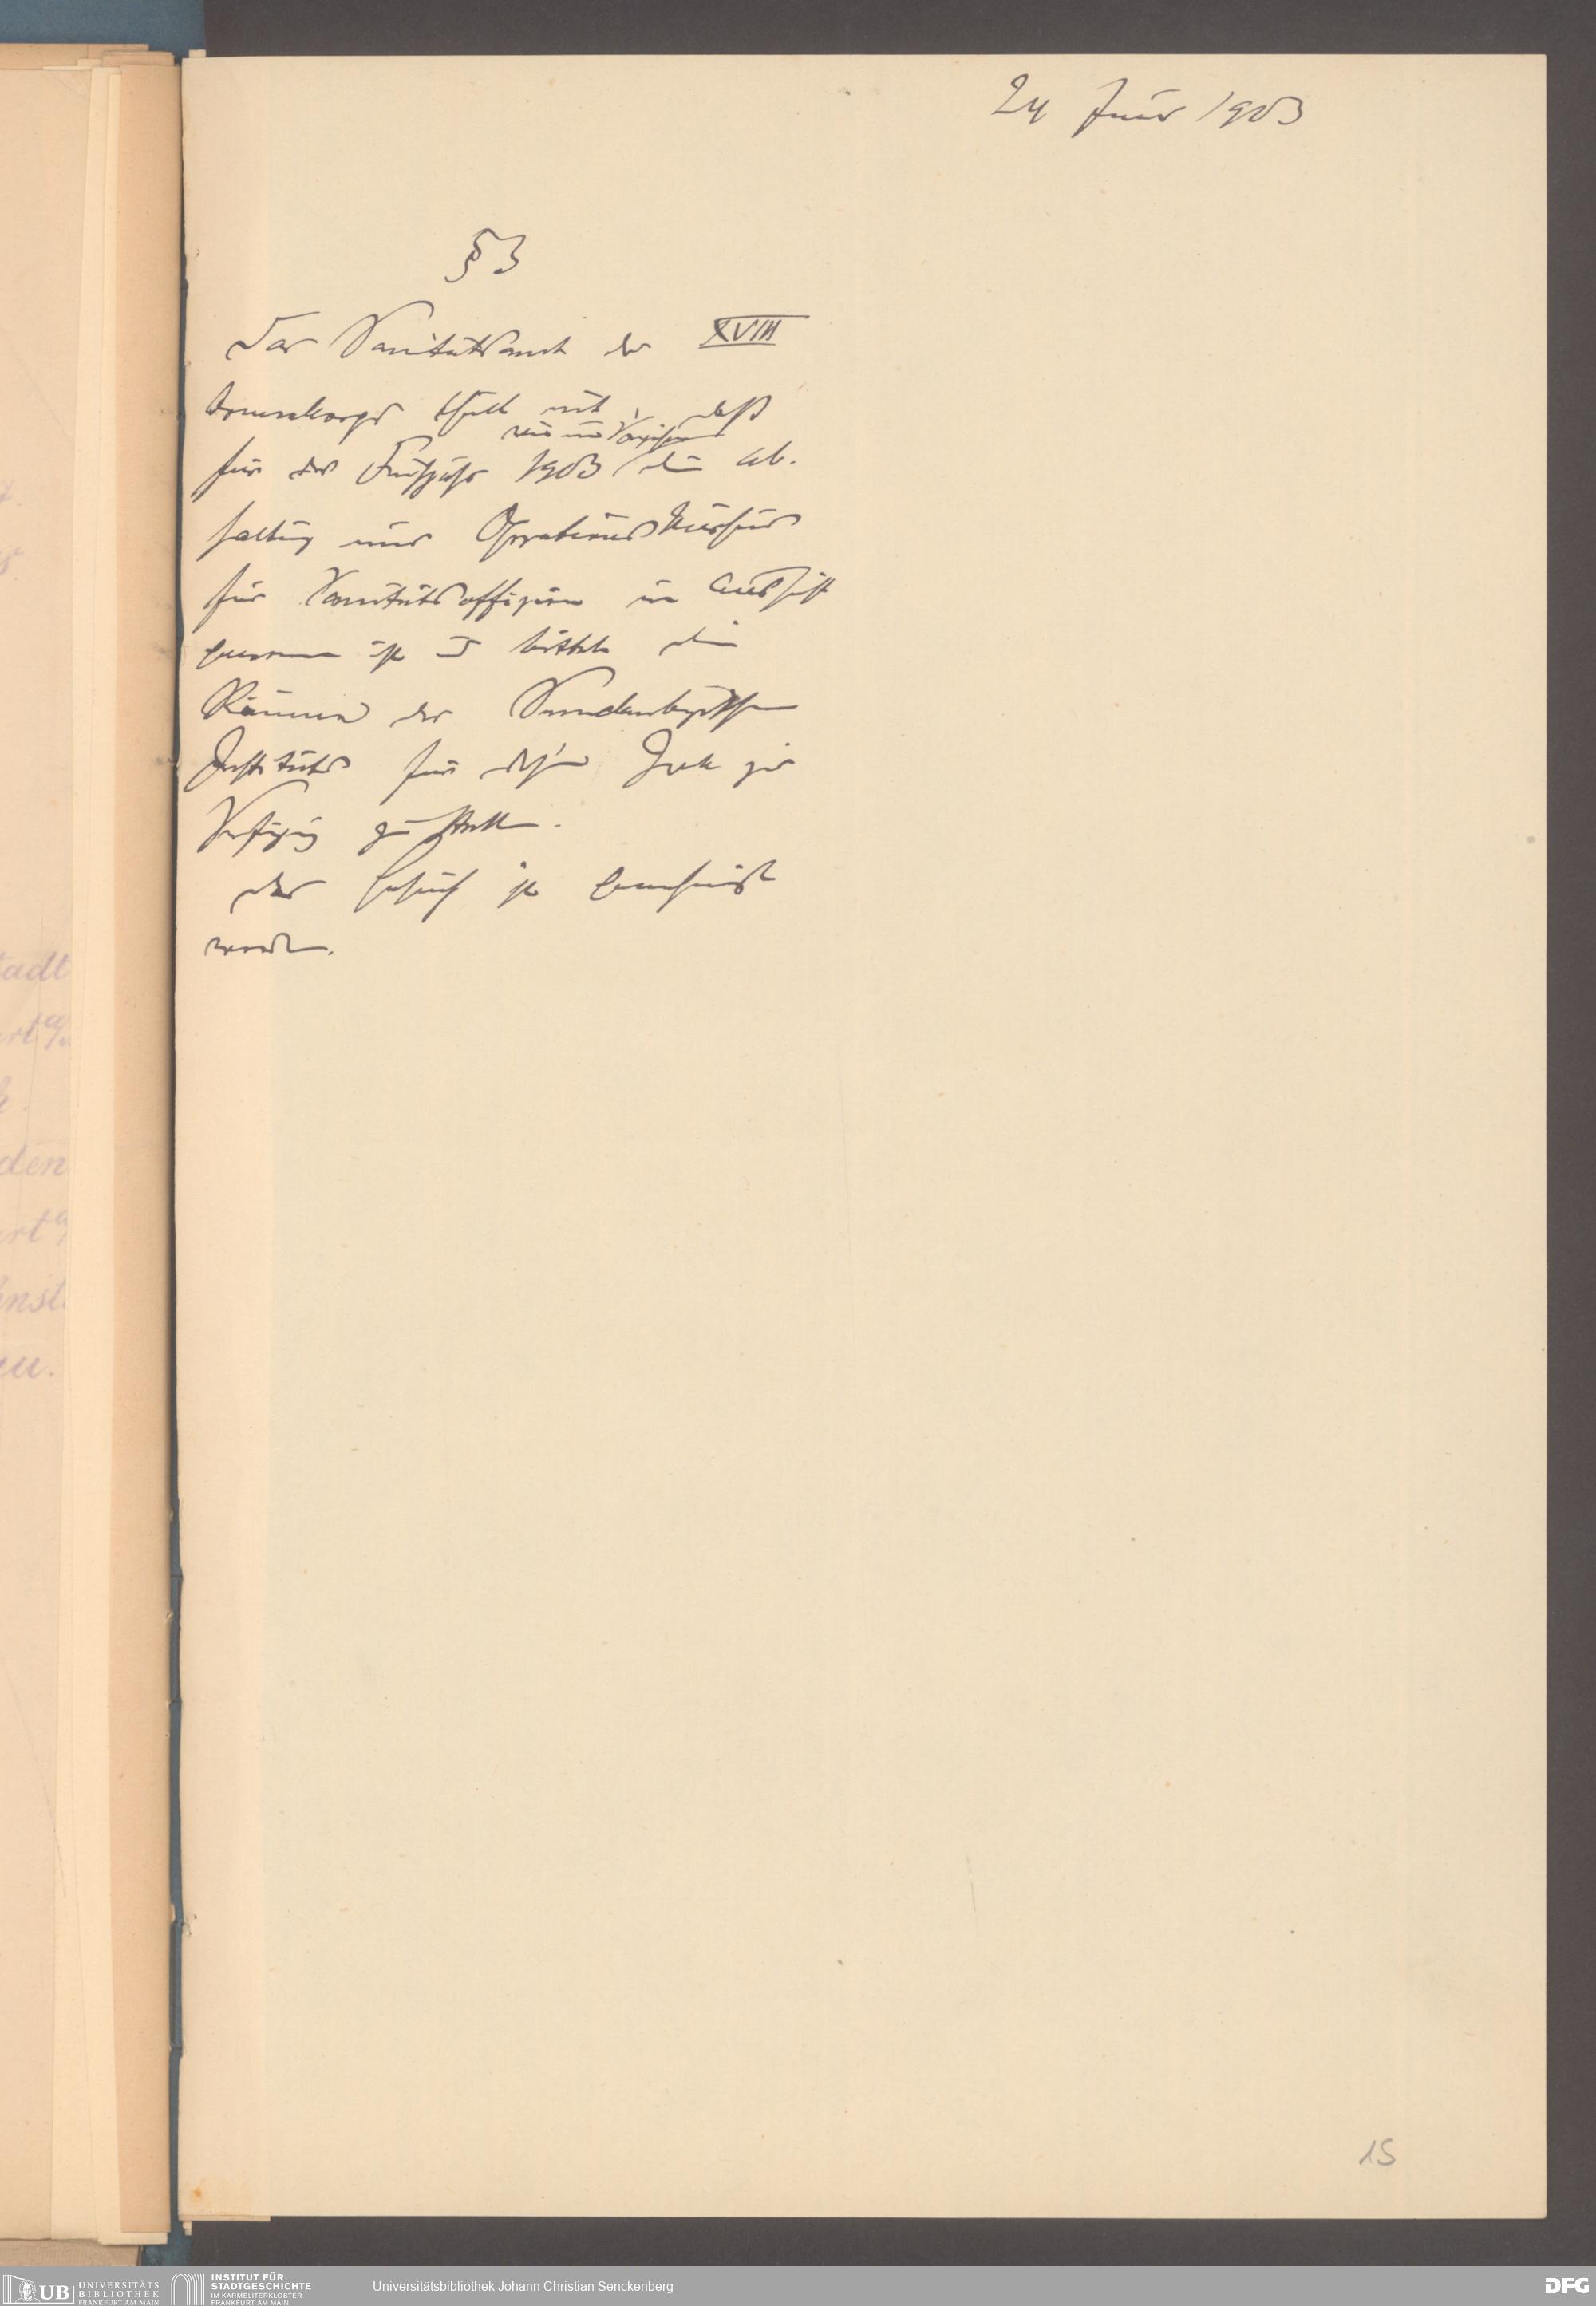 24 Januar 1903
§ 3
Das Sanitätsamt des XVIII
Armeekorps theilt mit, daß
wie im Vorjahre
für das Frühjahr 1903 die Ab-
haltung eines Operationskursus
für Sanitätsoffiziere in Aussicht
genommen ist u bittet die
Räume des Senckenbergischen
Instituts für diesen Zweck zur
Verfügung zu stellen.
Das Gesuch ist genehmigt
worden.
15
tadt
den
UB UNIVERSITÄTS
BIBLIOTHEK
FRANKFURT AM MAIN
INSTITUT FÜR
STADTGESCHICHTE
IM KARMELITERKLOSTER
FRANKFURT AM MAIN
Universitätsbibliothek Johann Christian Senckenberg
DFG